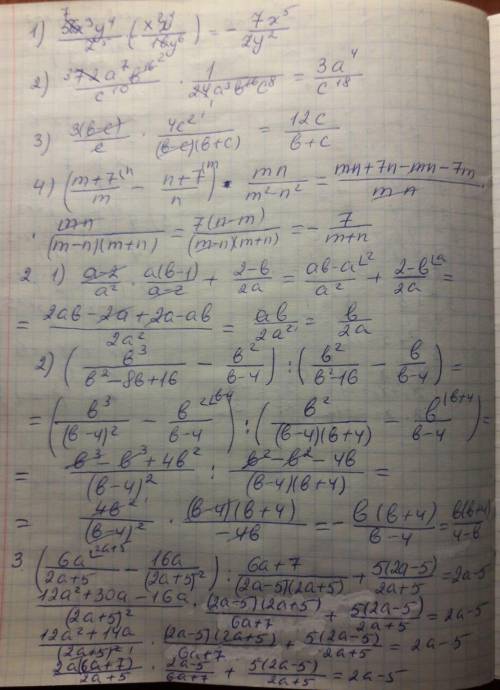 1) 56x³y⁴/z⁵ · (x²z⁴/16y⁶) = - 7x⁵/2y²
2) 72a⁷b¹⁶/c¹⁰ · 1/24a³b¹⁶c⁸ = 3a⁴/c¹⁸
3) 3(в-c)/c · 4c²/(в-c)(в+c) = 12c/в+c
4) (m+7/m - n+7/n) · mn/m²-n² = mn+7n-mn-7m/mn ·
· mn/(m-n)(m+n) = 7(n-m)/(m-n)(m+n) = - 7/m+n
2. 1) a-2/a² · a(в-1)/a-2 + 2-в/2a = aв-a/a² + 2-в/2a =
= 2aв-2a+2a-aв/2a² = aв/2a² = в/2a
2) (в³/в²-8в+16 - в²/в-4) : (в²/в²-16 - в/в-4) =
= (в³/(в-4)² - в²/в-4) : (в²/(в-4)(в+4) - в/в-4) =
= в³-в³+4в²/(в-4)² : в²-в²-4в/(в-4)(в+4) =
= 4в²/(в-4)² · (в-4)(в+4)/-4в = - в(в+4)/в-4 = в(в+4)/4-в
3. (6a/2a+5 - 16a/(2a+5)²) : 6a+7/(2a-5)(2a+5) + 5(2a-5)/2a+5 = 2a-5
12a²+30a-16a/(2a+5)² · (2a-5)(2a+5)/6a+7 + 5(2a-5)/2a+5 = 2a-5
12a²+14a/(2a+5)² · (2a-5)(2a+5)/6a+7 + 5(2a-5)/2a+5 = 2a-5
2a(6a+7)/2a+5 · 2a-5/6a+7 + 5(2a-5)/2a+5 = 2a-5